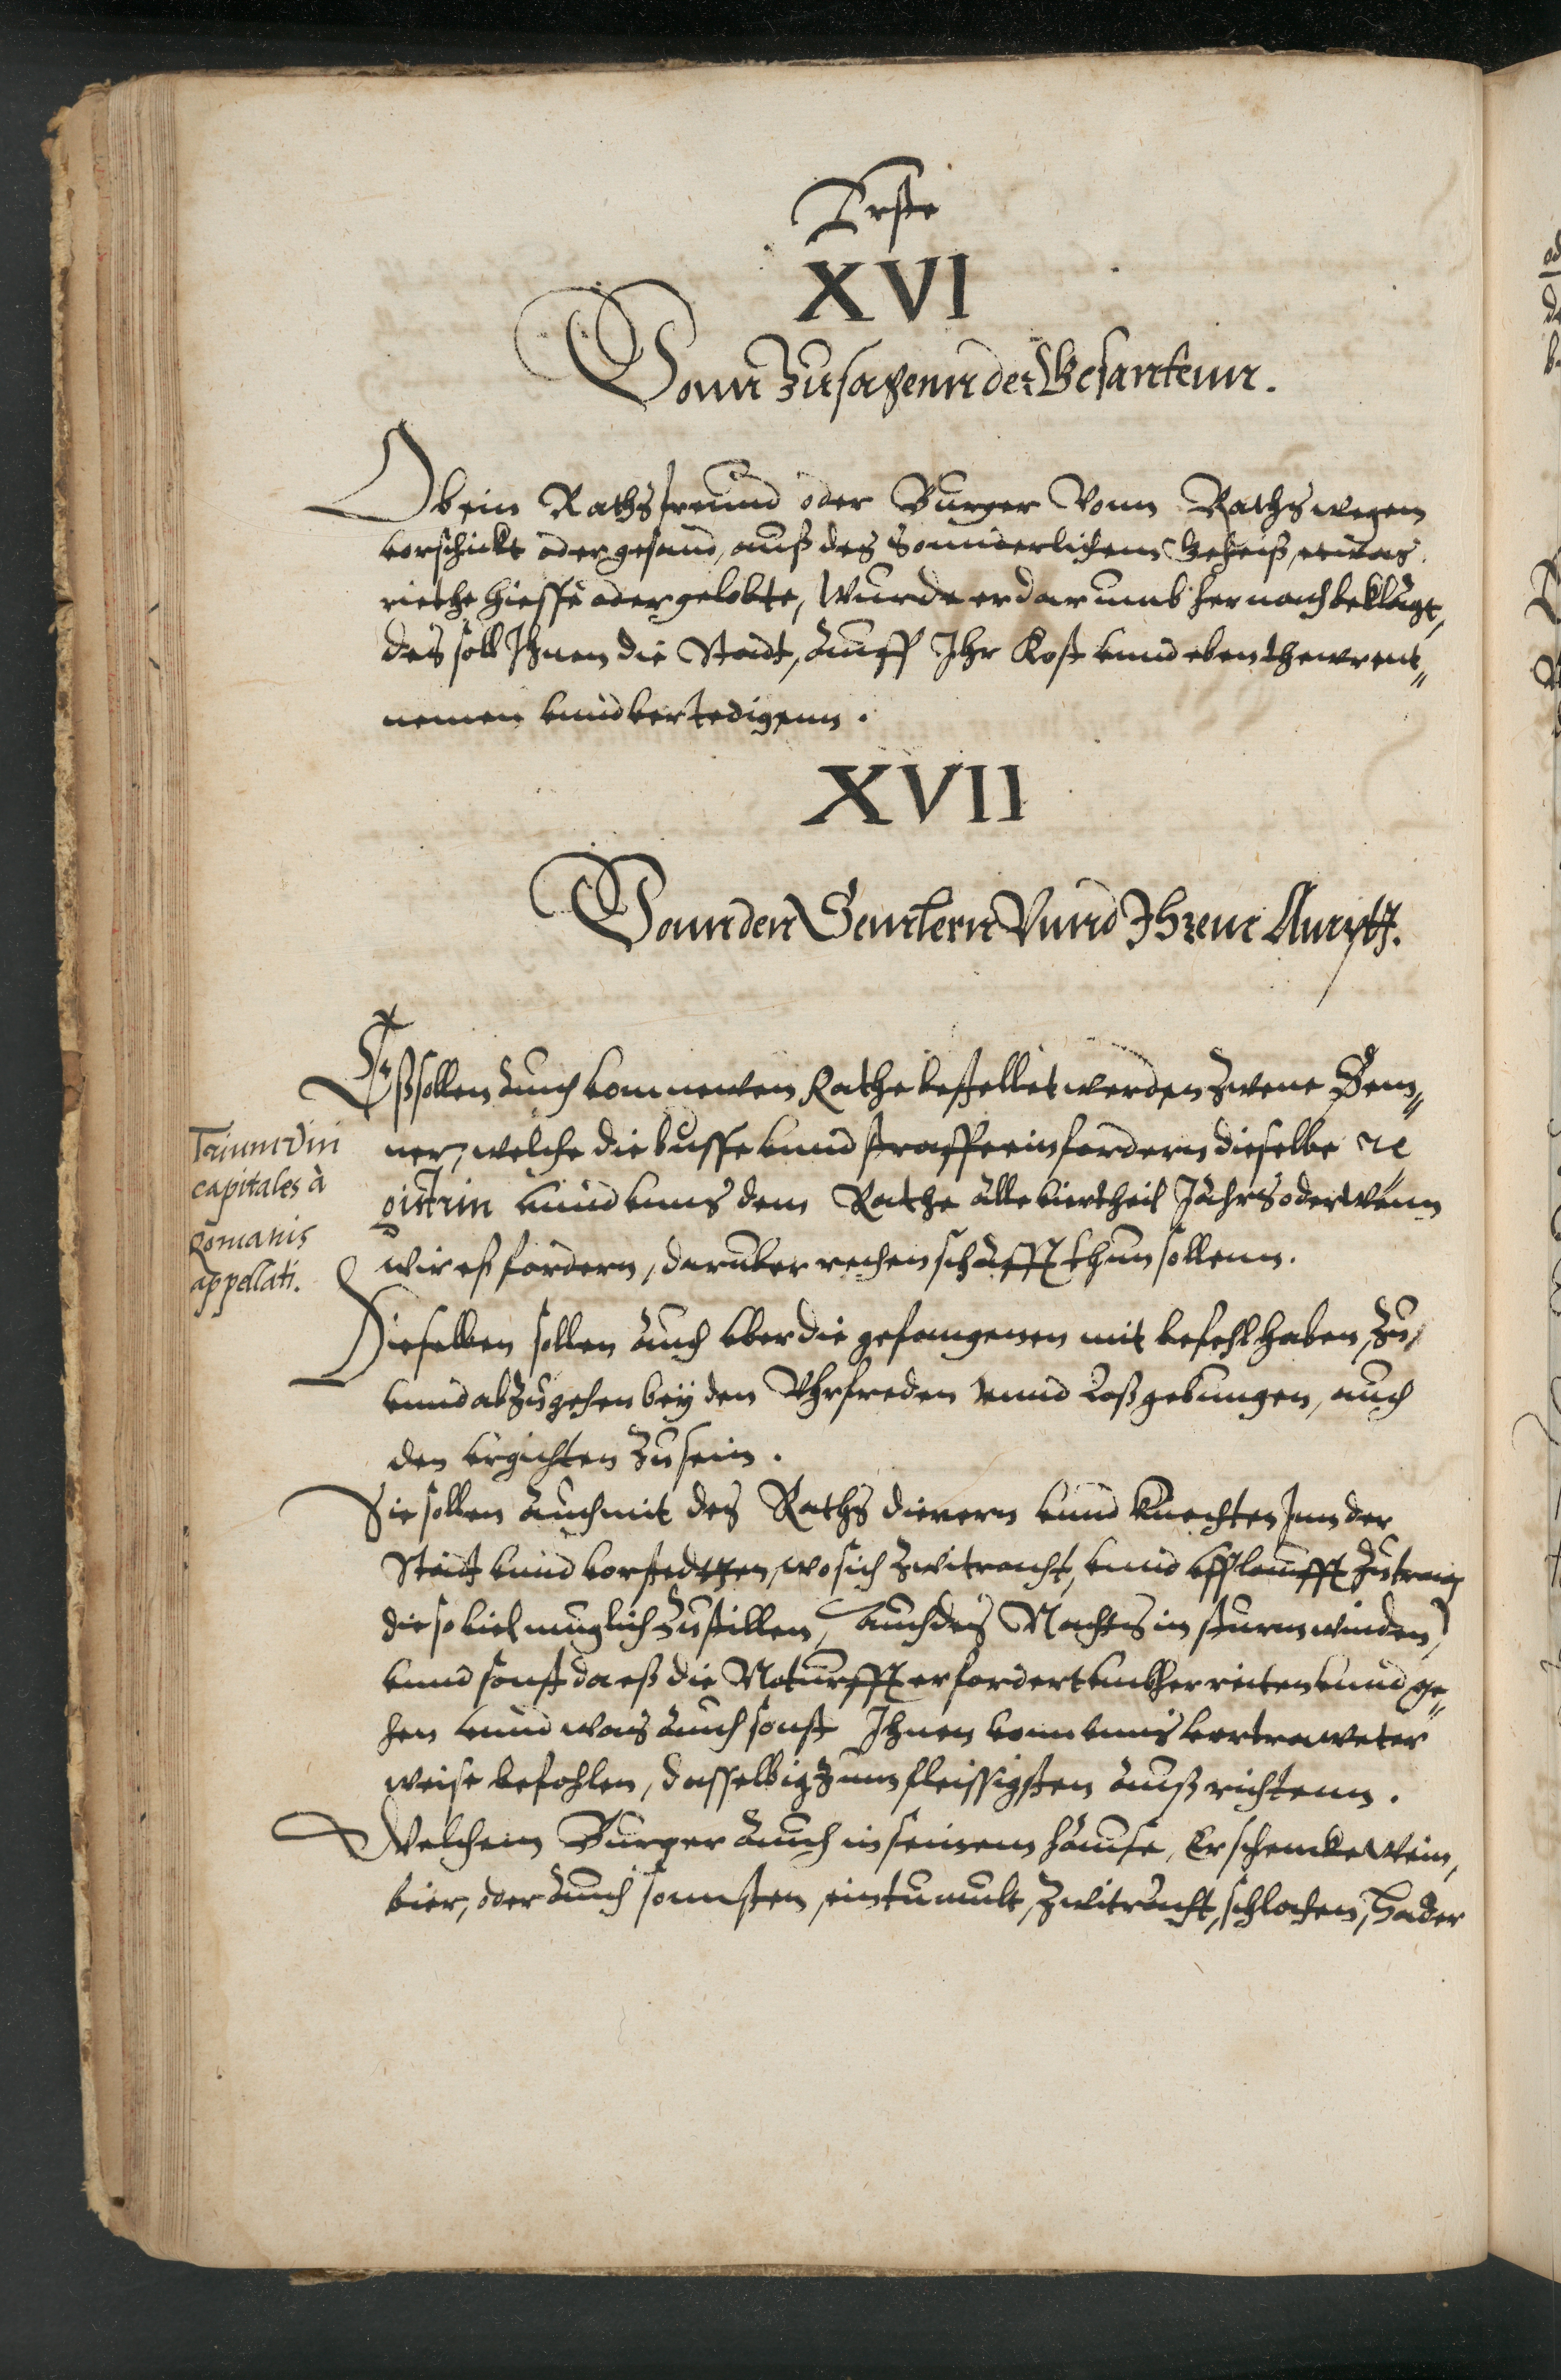 Erste
XVI
Vonn Zusagenn der Gesantenn.
Ob ein Rathsfreund oder Burger Vonn Raths wegen
vorschickt oder gesand, auß des Sonnderlichenn geheiß, etwas
riethe hiesse oder gelobte, Wurde er darumb hernach beklagt,
des soll Ihnen die Stadt, auff Ihr Kost vnnd ebenthewr ent„
nemen vnnd vertedigenn.
XVII
Vonn den Vnnd Ihrem Ampt.
Eß sollen auch vom newen Rathe bestellet werden Zwene
ner, welche die busse vnnd straffe einfordern dieselbe re
gistrirn vnnd vnns dem Rathe alle viertheil Jahrs oder wenn
wir eß fordern, daruber rechenschafft thun sollenn.
Triumviri
capitales à
Romanis
appellati.
Dieselben sollen auch vber die gefangenen mit befehl haben, Zu
vnnd abzugehen bey den Vhrfreden vnnd Loßgebungen, auch
den vrgichten Zu sein.
Sie sollen auch mit des Raths dienern vnnd knechten Inn der
Stadt vnnd vorstedtgen, wo sich Zwitracht, vnnd vfflaufft Zutrug
die so viel muglich Zustillen, auch des Nachts in sturmwinden,
vnnd sonst da eß die Noturfft erfordert vmbher reiten vnnd ge„
hen vnnd was auch sonst Ihnen vonn vnns vertraweter
weise befohlen, dasselbig Zum fleissigsten außrichtenn.
Welchem Burger auch in seinem hause, Er schencke Wein,
bier, oder auch sonnsten, ein tumult, Zwitracht, schlahen, Hader